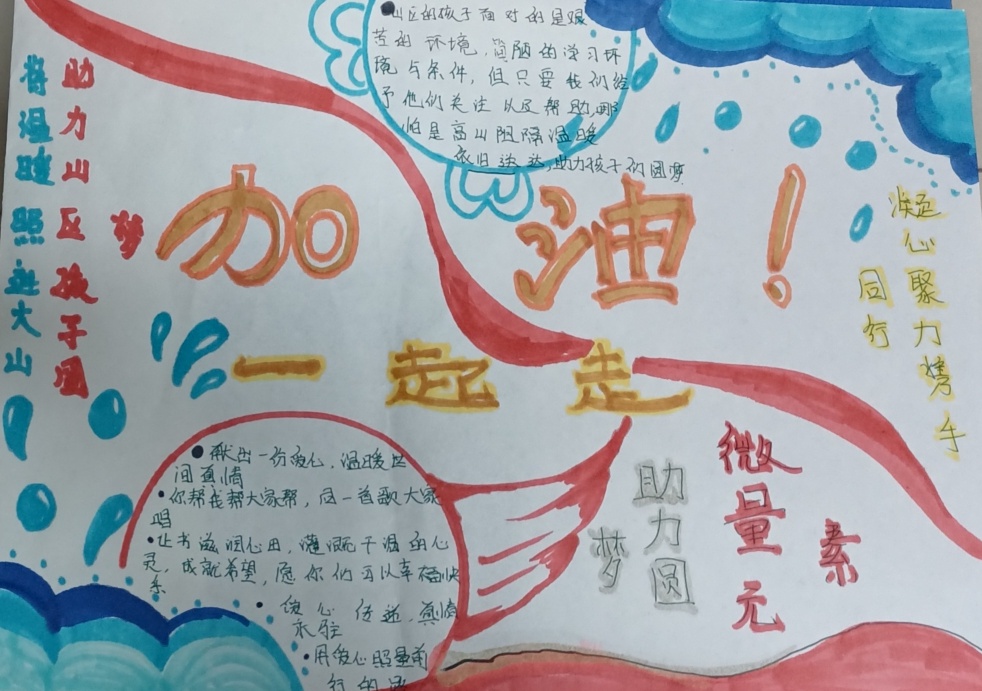 山区的孩子面对的是艰
苦的环境，简陋的学习环
境与条件，但只要我们给
予他们关注以及帮助，哪
怕是高山阻隔温暖
依旧送达，助力孩子们圆梦
助力山区孩子圆
梦
将温暖照进大山
加油！
一起走
凝心聚力携手
同行
献出一份爱心，温暖世
间真情
你帮我帮大家帮，同一首歌大家
唱
让书滋润心田，灌溉干涸的心
灵，成就希望，愿你们可以幸福快
乐
信心传递，真情
永驻
用爱心照量前
行的
助力圆
梦
微量元
素